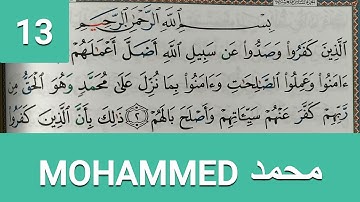 13
بِسْمِ اللَّهِ الرَّحْمَٰنِ الرَّحِيمِ
الَّذِينَ كَفَرُوا وَصَدُّوا عَن سَبِيلِ اللَّهِ أَضَلَّ أَعْمَالَهُمْ
ءَامَنُوا وَعَمِلُوا الصَّالِحَاتِ وَءَامَنُوا بِمَا نُزِّلَ عَلَىٰ مُحَمَّدٍ وَهُوَ الْحَقُّ مِن
رَّبِّهِمْ كَفَّرَ عَنْهُمْ سَيِّئَاتِهِمْ وَأَصْلَحَ بَالَهُمْ ٢ ذَٰلِكَ بِأَنَّ الَّذِينَ كَفَرُوا
MOHAMMED محمد